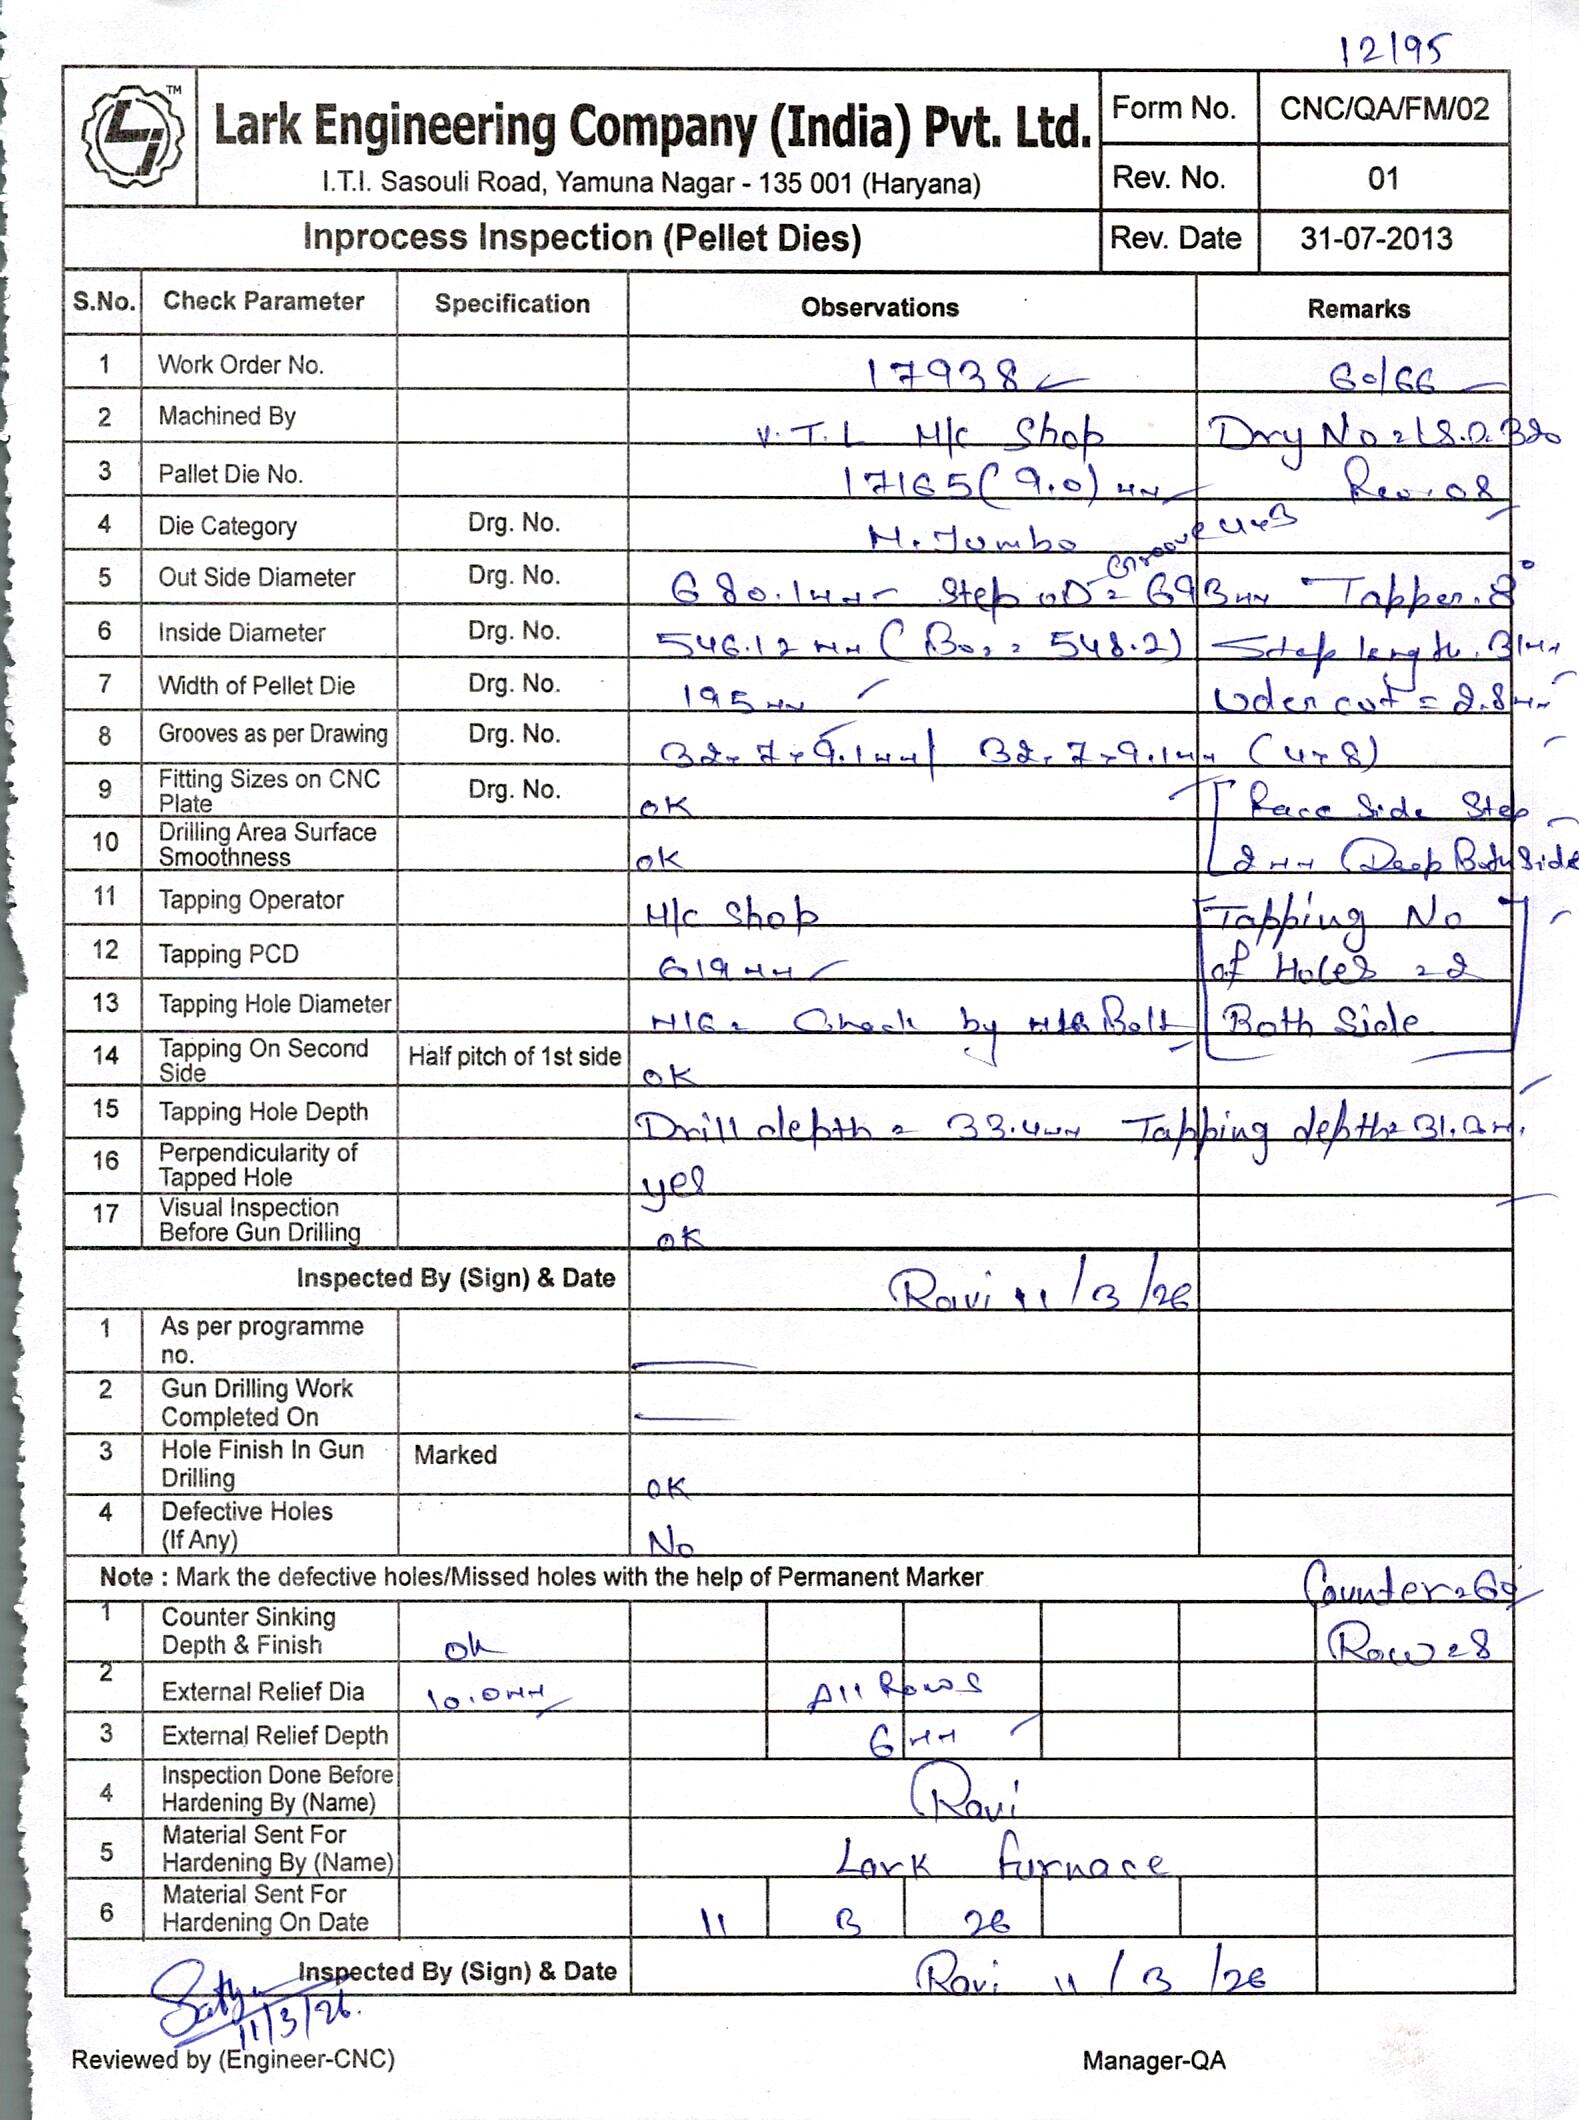 12195
TM
Lark Engineering Company (India) Pvt. Ltd.
I.T.I. Sasouli Road, Yamuna Nagar - 135 001 (Haryana)
Form No. CNC/QA/FM/02
Rev. No. 01
Inprocess Inspection (Pellet Dies) Rev. Date 31-07-2013
S.No. Check Parameter Specification Observations Remarks
1 Work Order No. 17938 60/66
2 Machined By V.T.L M/C Shop
3 Pallet Die No. 17165 (9.0) mm Rev. 08
4 Die Category Drg. No. M. Jumbo Groove 4x3
5 Out Side Diameter Drg. No. 680.1mm Step OD = 693mm Tapper. 8°
6 Inside Diameter Drg. No. 546.12 mm (Bo = 548.2) Step length. 31mm
7 Width of Pellet Die Drg. No. 195mm Uder cut = 2.8mm
8 Grooves as per Drawing Drg. No. 32x7x9.1mm / 32x7x9.1mm (4x8)
9 Fitting Sizes on CNC Plate Drg. No. OK Race Side Step
10 Drilling Area Surface Smoothness OK 2mm Deep Both Side
11 Tapping Operator M/C Shop Tapping No
12 Tapping PCD 619mm of Holes = 2
13 Tapping Hole Diameter M16 = Check by M16 Bolt Both Side
14 Tapping On Second Side Half pitch of 1st side OK
15 Tapping Hole Depth Drill depth = 33.4mm Tapping depth=
16 Perpendicularity of Tapped Hole yes
17 Visual Inspection Before Gun Drilling OK
Inspected By (Sign) & Date Ravi 11/3/26
1 As per programme no.
2 Gun Drilling Work Completed On
3 Hole Finish In Gun Drilling Marked OK
4 Defective Holes (If Any) No
Note : Mark the defective holes/Missed holes with the help of Permanent Marker Counter=60°
1 Counter Sinking Depth & Finish ok Row=8
2 External Relief Dia 10.0mm All Rows
3 External Relief Depth 6mm
4 Inspection Done Before Hardening By (Name) Ravi
5 Material Sent For Hardening By (Name) Lark furnace
6 Material Sent For Hardening On Date 11 3 26
Inspected By (Sign) & Date Ravi 11/3/26
11/3/26.
Reviewed by (Engineer-CNC) Manager-QA